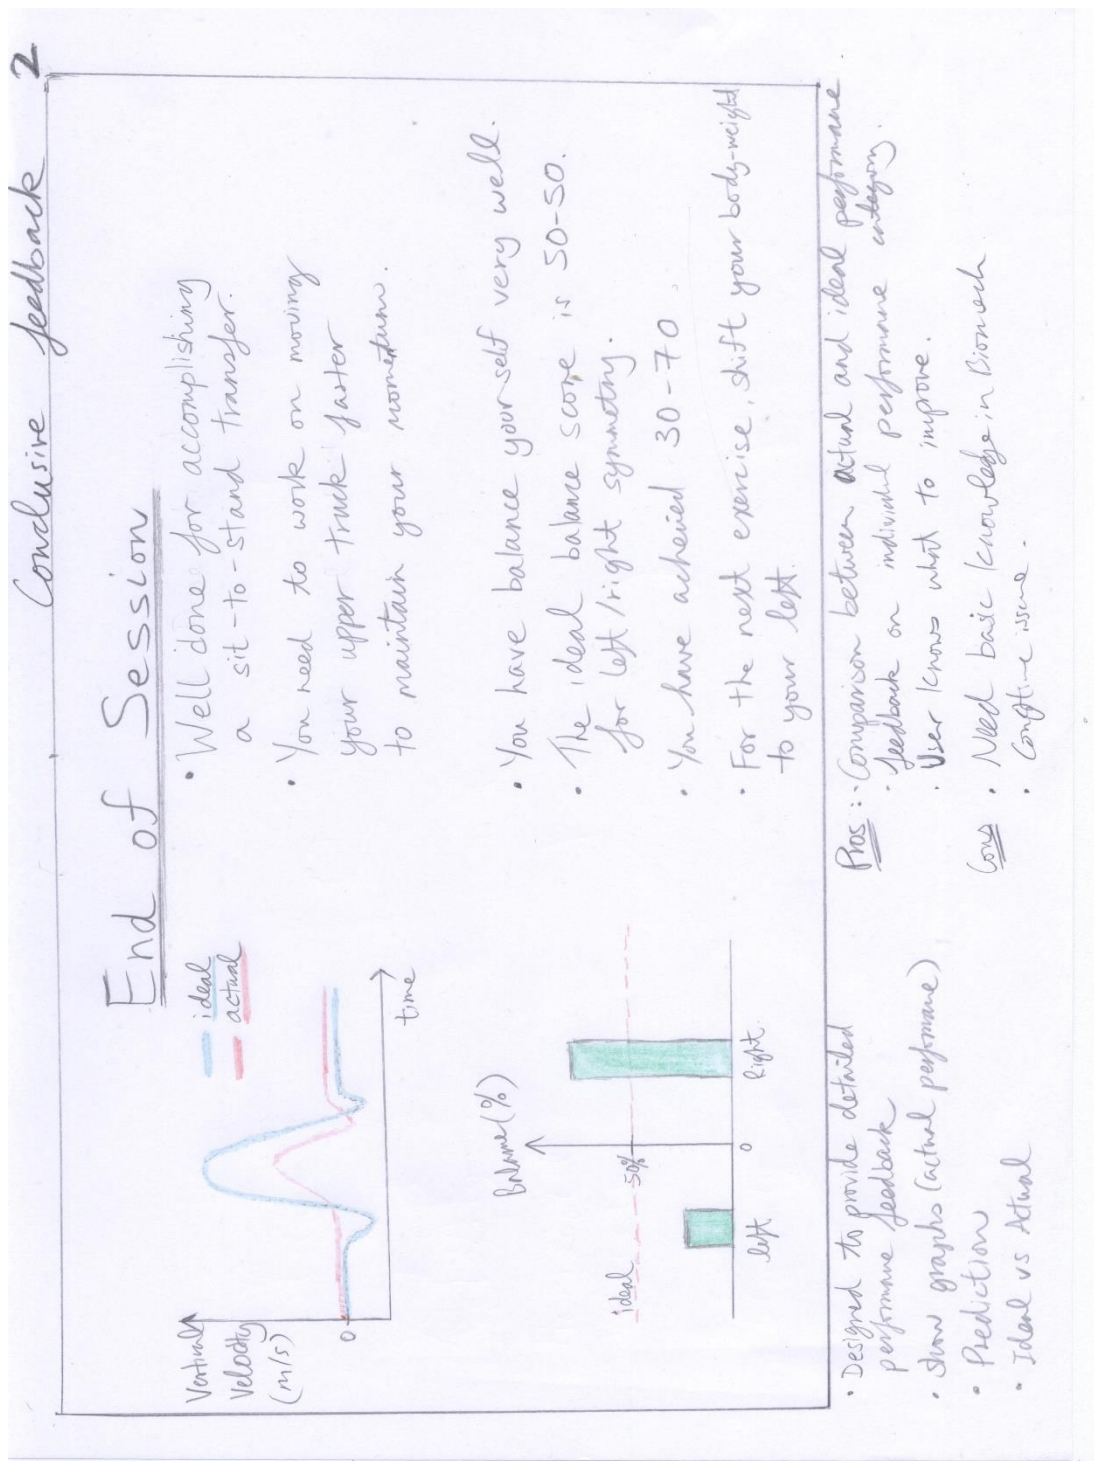 Conclusive feedback 2
End of Session
Vertical
Velocity
(m/s)
0
time
ideal
actual
• Well done for accomplishing
a sit-to-stand transfer.
• You need to work on moving
your upper truck faster
to maintain your momentum.
Balance (%)
ideal
50%
left
0
Right
• You have balance yourself very well.
• The ideal balance score is 50-50.
for left/right symmetry.
• You have acheived 30-70.
• For the next exercise, shift your body-weight
to your left.
• Designed to provide detailed
performance feedback
• Show graphs (actual performance)
• Prediction
• Ideal vs Actual
Pros: • Comparison between actual and ideal performance
• feedback on individual performance category.
• User knows what to improve.
Cons • Need basic knowledge in Biomech
• issue.